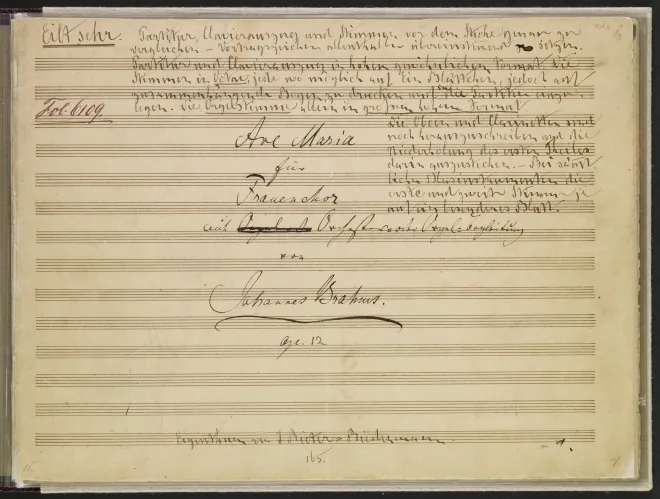 Eilt sehr. Partitur, Clavierauszug und Stimmen vor dem Stiche genau zu
vergleichen. – Vortragszeichen allenthalben übereinstimmend zu setzen.
Partitur und Clavierauszug in hohem gewöhnlichen Format. Die
Stimmen in Octav, jede wo möglich auf Ein Blättchen, jedoch auf
zusammenhängende Bogen zu drucken und in die Partitur einzu-
legen. Die Orgelstimme allein in grossem hohem Format
Fol. 6109.
Die Oboen und Clarinetten sind
noch herauszuschreiben und die
Wiederholung des ersten Theiles
darin auszustechen. – Bei sämt-
lichen Blasinstrumenten die
erste und zweite Stimme je
auf ein besonderes Blatt.
Ave Maria
für
Frauenchor
mit Orchester- oder Orgel-begleitung
von
Johannes Brahms.
op. 12
Eigenthum von J Rieter-Biedermann
165.
1.